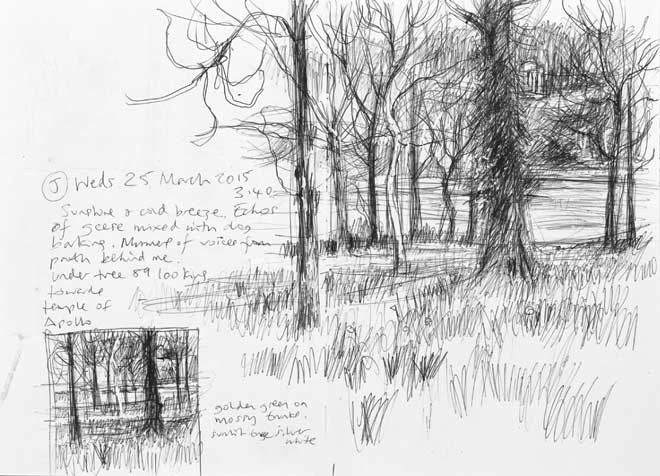 J Weds 25 March 2015
3.40
Sunshine & cold breeze. Echos
of geese mixed with dog
barking. Murmer of voices from
path behind me.
under tree 89 looking
towards
temple of
Apollo
golden green on
mossy trunks.
sunlit tree silver
white